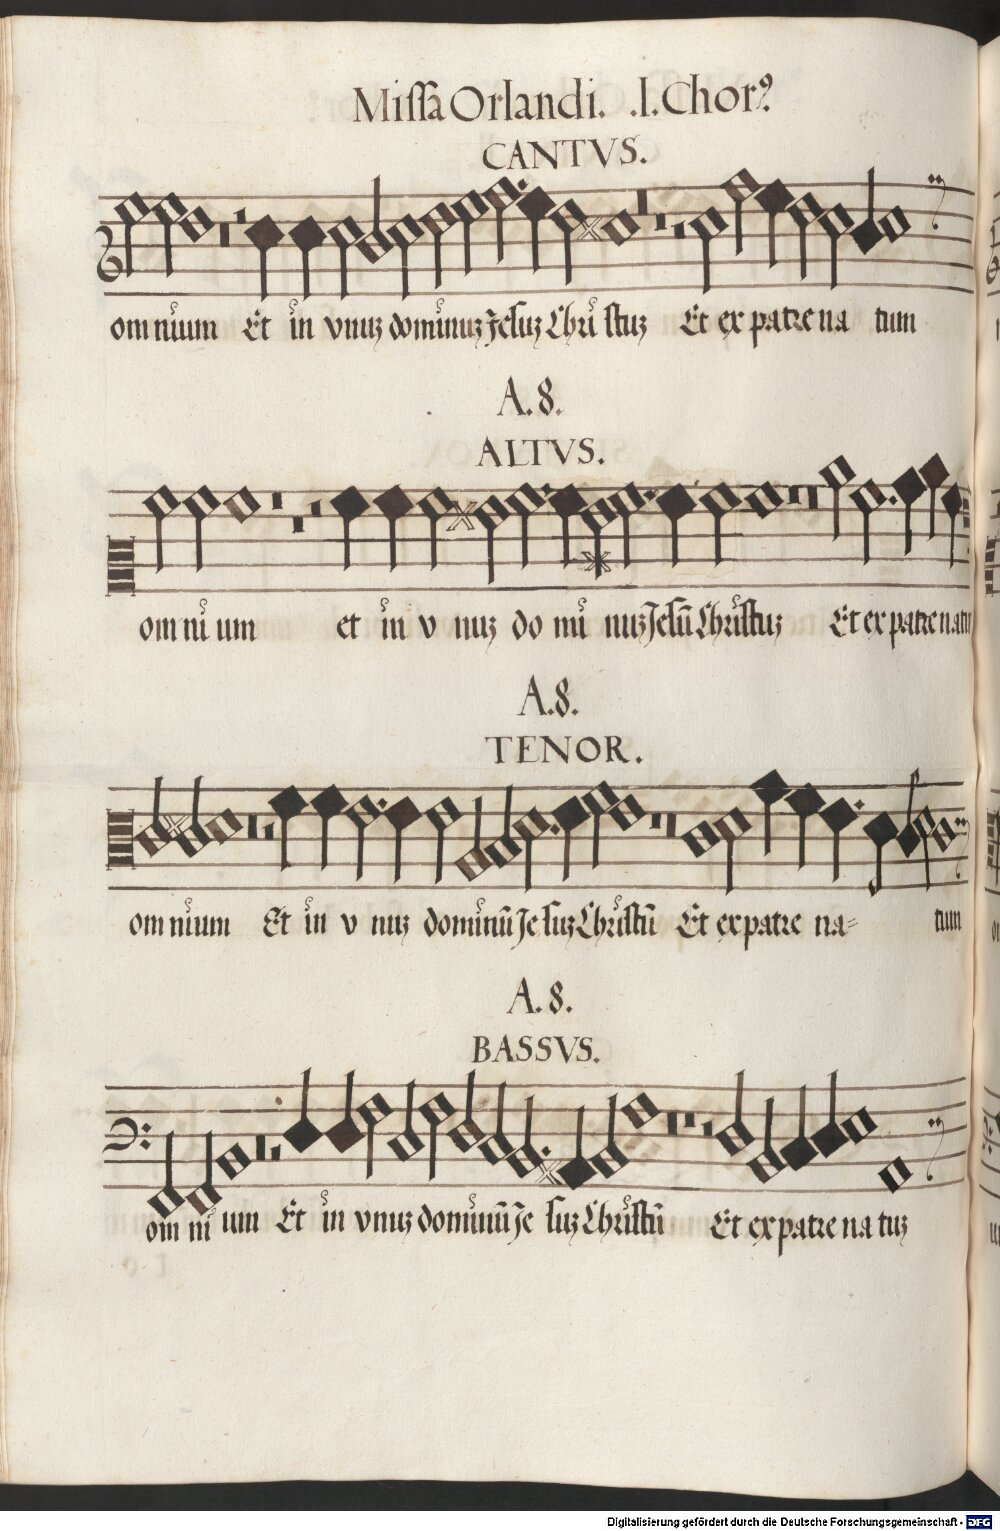 Missa Orlandi. .I. Chorꝰ
CANTVS.
om nium Et in vnuz dominuz Jesuz Chri stuz Et ex patre na tum
A. 8.
ALTVS.
om ni um et in v nuz do mi nuz Jesū Christuz Et ex patre natū
A. 8.
TENOR.
om nium Et in v nuz dominū Je suz Christū Et ex patre na= tum
A. 8.
BASSVS.
om ni um Et in vnuz dominū Je suz Christū Et ex patre na tuz
Digitalisierung gefördert durch die Deutsche Forschungsgemeinschaft - DFG